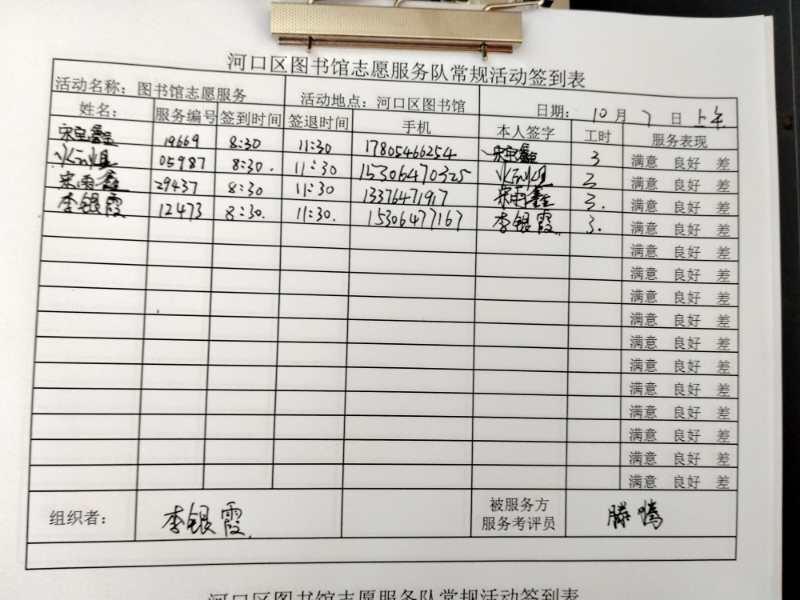 河口区图书馆志愿服务队常规活动签到表
活动名称：图书馆志愿服务 活动地点：河口区图书馆 日期： 10 月 7 日 上午
姓名： 服务编号 签到时间 签退时间 手机 本人签字 工时 服务表现
19669 8:30 11:30 17805466254 3 满意 良好 差
05987 8:30. 11:30 15306470325 3 满意 良好 差
宋雨鑫 29437 8:30 11:30 13376471917 宋雨鑫 3. 满意 良好 差
李银霞 12473 8:30. 11:30. 15306477167 李银霞. 3. 满意 良好 差
满意 良好 差
满意 良好 差
满意 良好 差
满意 良好 差
满意 良好 差
满意 良好 差
满意 良好 差
满意 良好 差
满意 良好 差
满意 良好 差
满意 良好 差
组织者： 李银霞. 被服务方
服务考评员 滕腾
河口区图书馆志愿服务队常规活动签到表